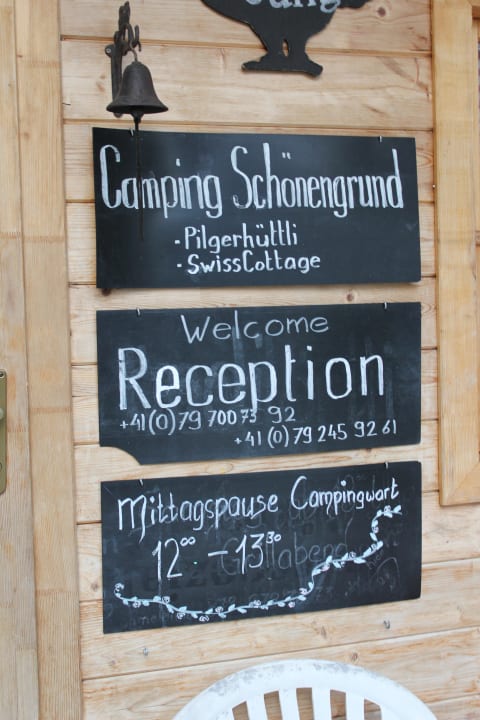 Camping Schönengrund
- Pilgerhüttli
- SwissCottage
Welcome
Reception
+41(0)79 700 73 92
+41(0)79 245 92 61
Mittagspause Campingwart
12⁰⁰ – 13³⁰